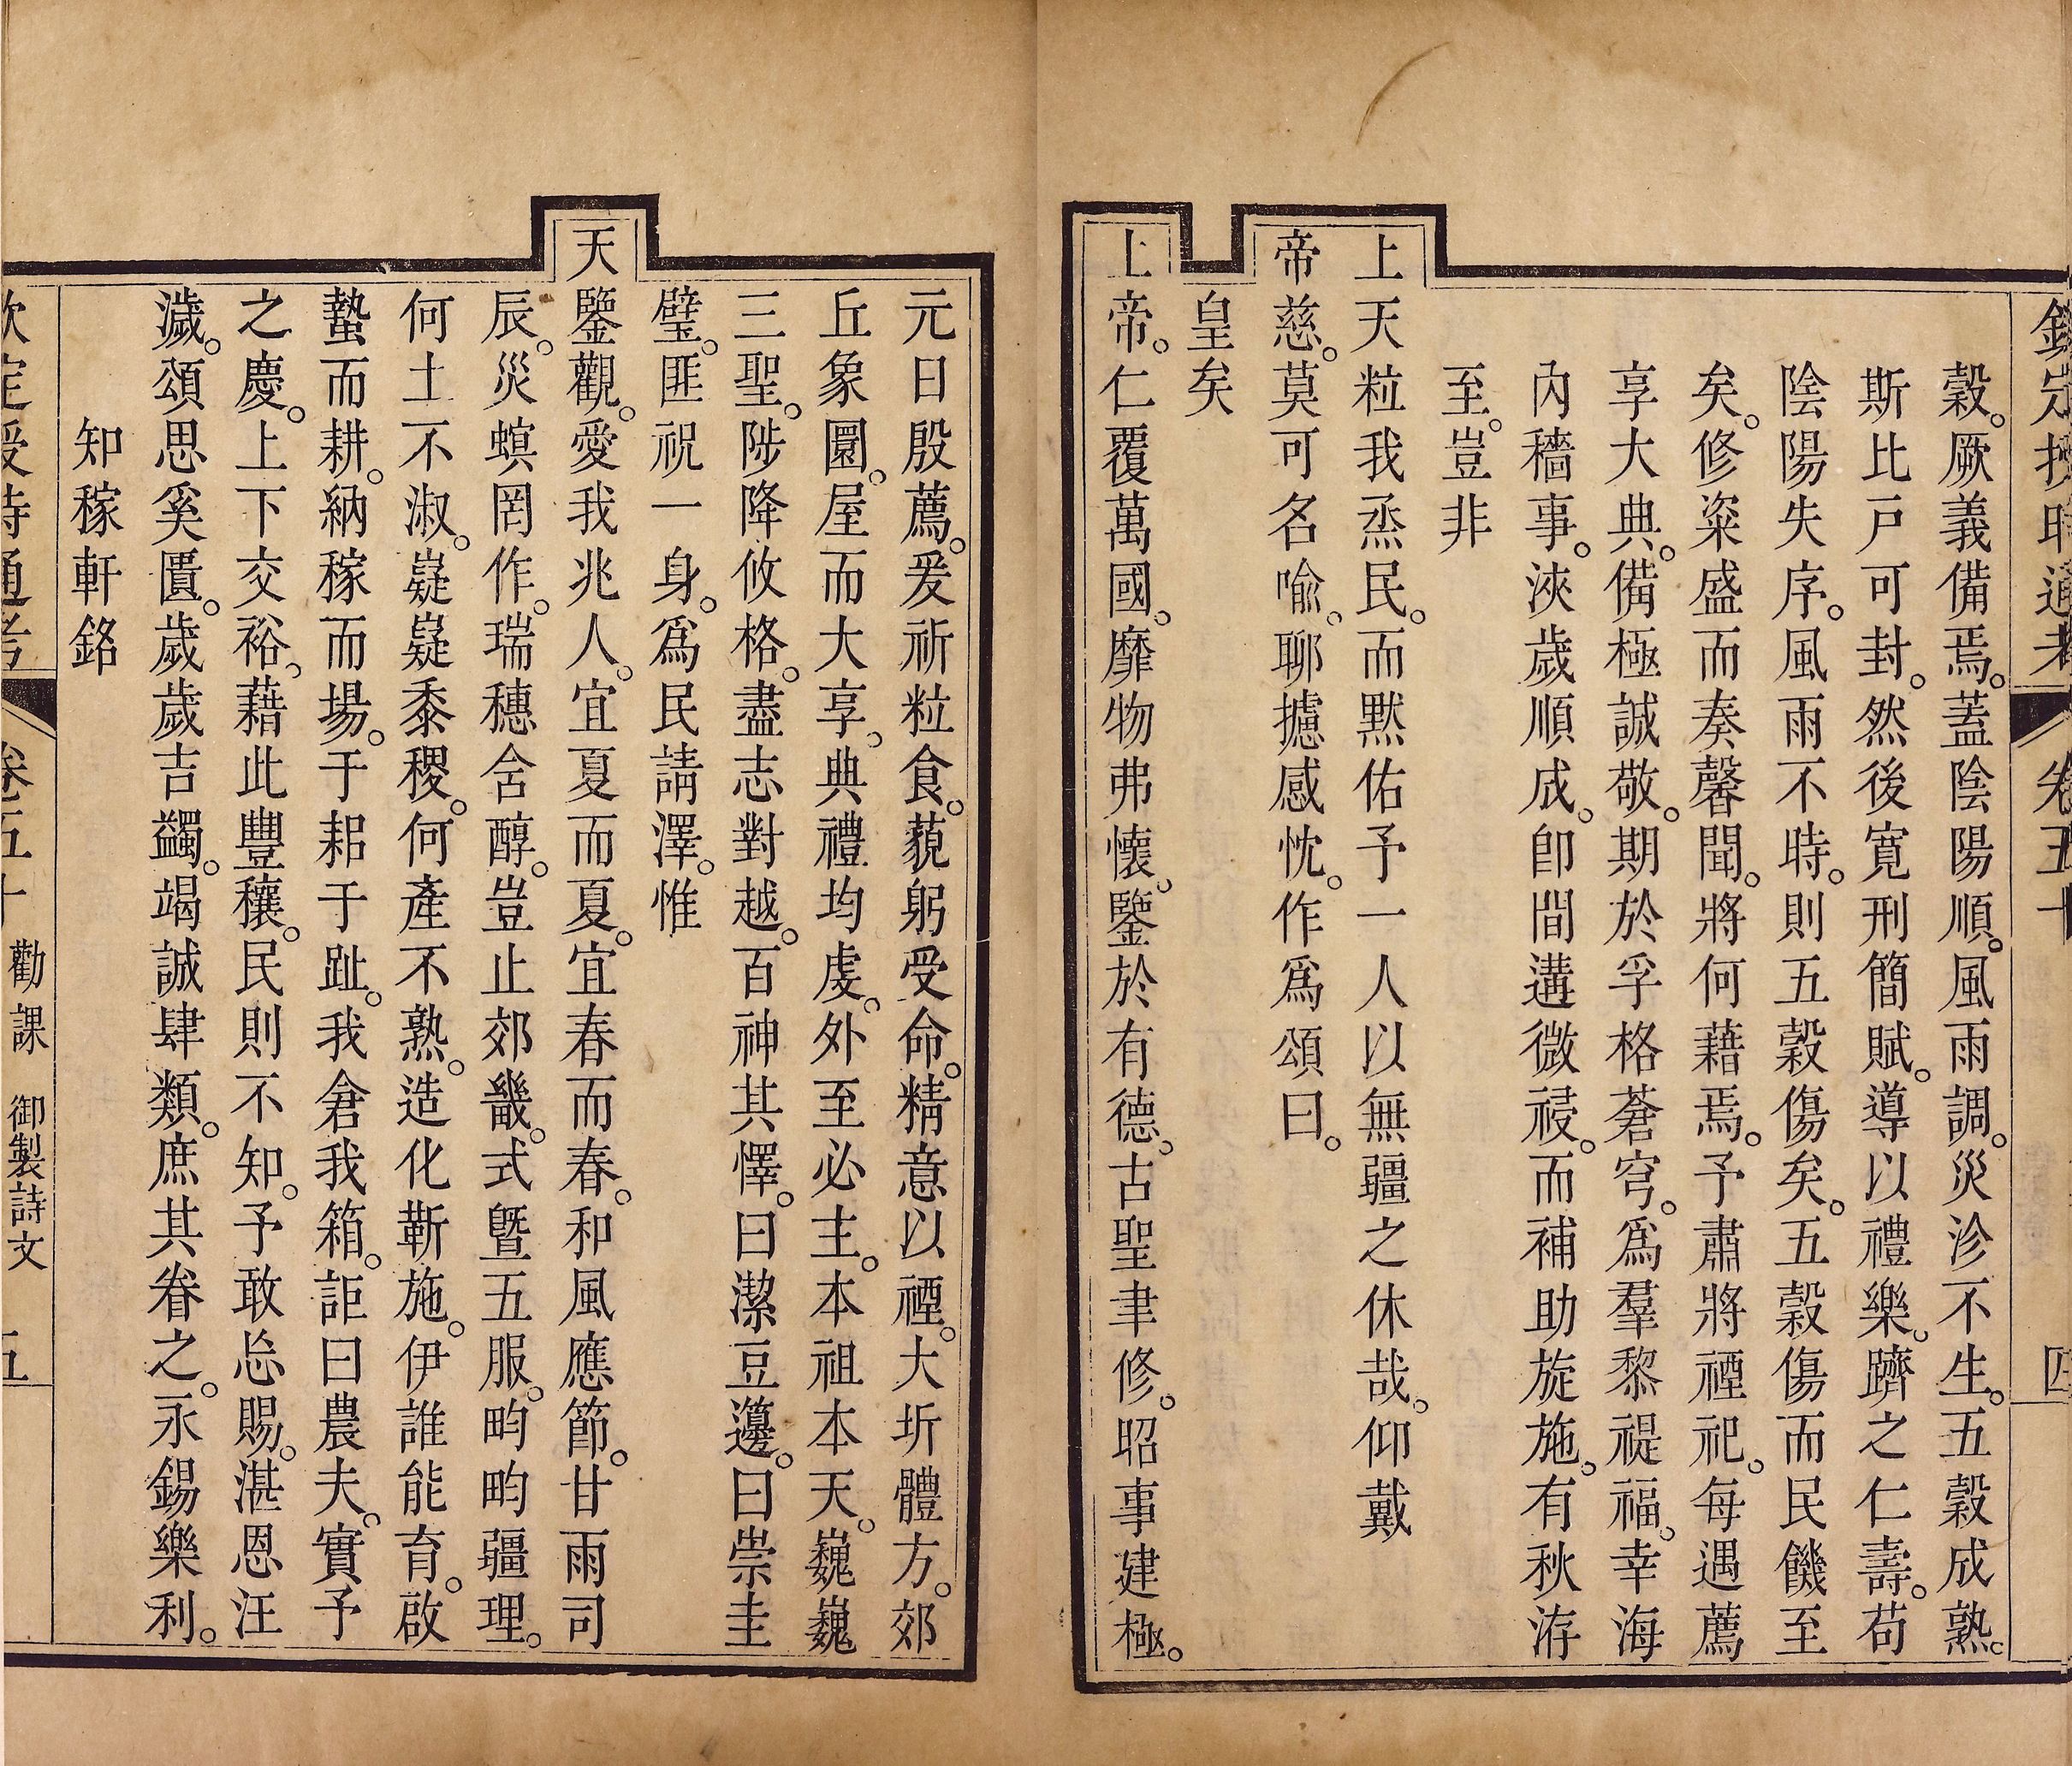 欽定授時通考 卷五十 四
穀。厥義備焉。蓋陰陽順。風雨調。災沴不生。五穀成熟。
斯比戸可封。然後寬刑簡賦。導以禮樂。躋之仁壽。苟
陰陽失序。風雨不時。則五穀傷矣。五穀傷而民饑至
矣。修粢盛而奏馨聞。將何藉焉。予肅將禋祀。每遇薦
享大典。備極誠敬。期於孚格蒼穹。爲羣黎禔福。幸海
內穡事。浹歲順成。卽間遘微祲。而補助旋施。有秋洊
至。豈非
上天粒我烝民。而默佑予一人以無疆之休哉。仰戴
帝慈。莫可名喻。聊攄感忱。作爲頌曰。
皇矣
上帝。仁覆萬國。靡物弗懷。鑒於有德。古聖聿修。昭事建極。
元日殷薦。爰祈粒食。藐躬受命。精意以禋。大圻體方。郊
丘象圜。屋而大享。典禮均虔。外至必主。本祖本天。巍巍
三聖。陟降攸格。盡志對越。百神其懌。曰潔豆籩。曰崇圭
璧。匪祝一身。爲民請澤。惟
天鑒觀。愛我兆人。宜夏而夏。宜春而春。和風應節。甘雨司
辰。災螟罔作。瑞穗含醇。豈止郊畿。式曁五服。畇畇疆理。
何土不淑。嶷嶷黍稷。何產不熟。造化靳施。伊誰能育。啟
蟄而耕。納稼而場。于耜于趾。我倉我箱。詎曰農夫。實予
之慶。上下交裕。藉此豐穰。民則不知。予敢忘賜。湛恩汪
濊。頌思奚匱。歲歲吉蠲。竭誠肆類。庶其眷之。永錫樂利。
知稼軒銘
欽定授時通考 卷五十 勸課 御製詩文 五